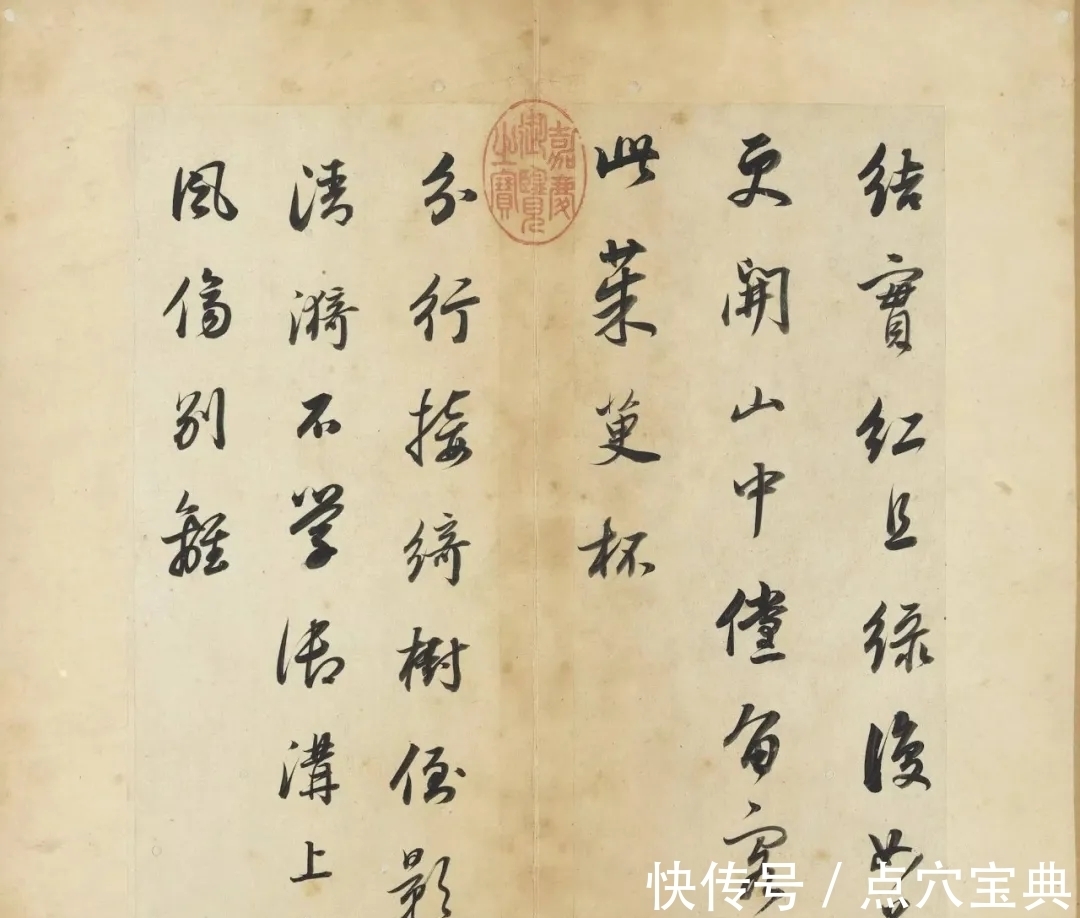 結實紅且綠復如
更開山中儻留客
此茱萸杯
嘉慶御覽之寶
分行接綺樹倒影
清漪不學御溝上
風傷別離
快传号 / 点穴宝典